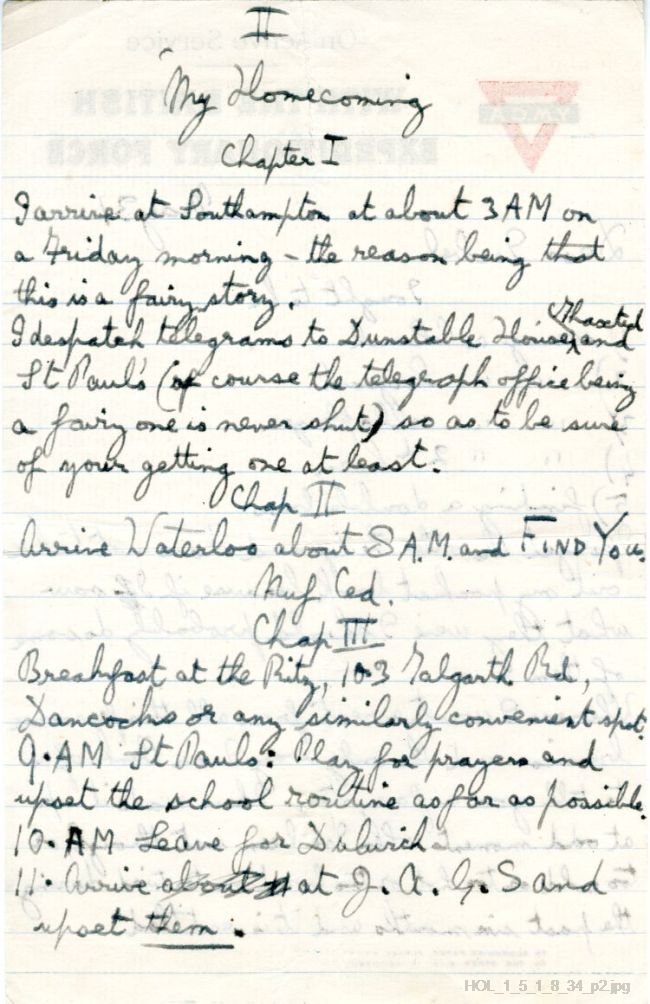 II
"My Homecoming
Chapter I
I arrive at Southampton at about 3 AM on
a Friday morning – the reason being that
this is a fairy story.
I despatch telegrams to Dunstable House, Thaxted and
St Paul's (of course the telegraph office being
a fairy one is never shut) so as to be sure
of your getting one at least.
Chap II
Arrive Waterloo about 8 A.M. and FIND YOU.
Nuf Ced.
Chap III
Breakfast at the Ritz, 103 Talgarth Rd,
or any similarly convenient spot.
9. AM St Pauls: Play for prayers and
upset the school routine as far as possible.
10. AM Leave for Dulwich
11. Arrive about at J. A. G. S and
upset them.
HOL_1_5_1_8_34_p2.jpg